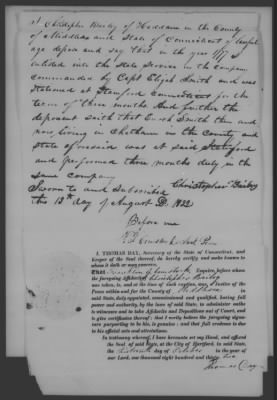 I Christopher Bailey of Haddam in the County
of Middlesex and State of Connecticut of lawful
age depose and say that in the year 1777 I
enlisted into the State Service in the company
commanded by Capt Elijah Smith and was
stationed at Stamford Connecticut for the
term of three months. And further the
deponent saith that Enoch Smith then and
now living in Chatham in the County and
State aforesaid was at said Stamford
and performed three months duty in the
same company
Sworn to and Subscribed Christopher Bailey
this 13th day of August AD. 1832
Before me
I, THOMAS DAY, Secretary of the State of Connecticut, and
Keeper of the Seal thereof, do hereby certify and make known to
whom it doth or may concern,
THAT Esquire, before whom
the foregoing Affidavit Christopher Bailey
was taken, is, and at the time of such caption, was, a Justice of the
Peace within and for the County of
in said
State, duly appointed, commissioned and qualified, having full
power and authority, by the laws of said State, to administer oaths
to witnesses and to take Affidavits and Depositions out of Court, and
to give certificates thereof: that I verily believe the foregoing signa-
ture purporting to be his, is genuine: and that full credence is to
his official acts and attestations.
In testimony whereof, I have hereunto set my Hand, and affixed
the Seal of said State, at the City of Hartford, in said State,
the day of October in the year of
our Lord, one thousand eight hundred and thirty two
Thomas Day